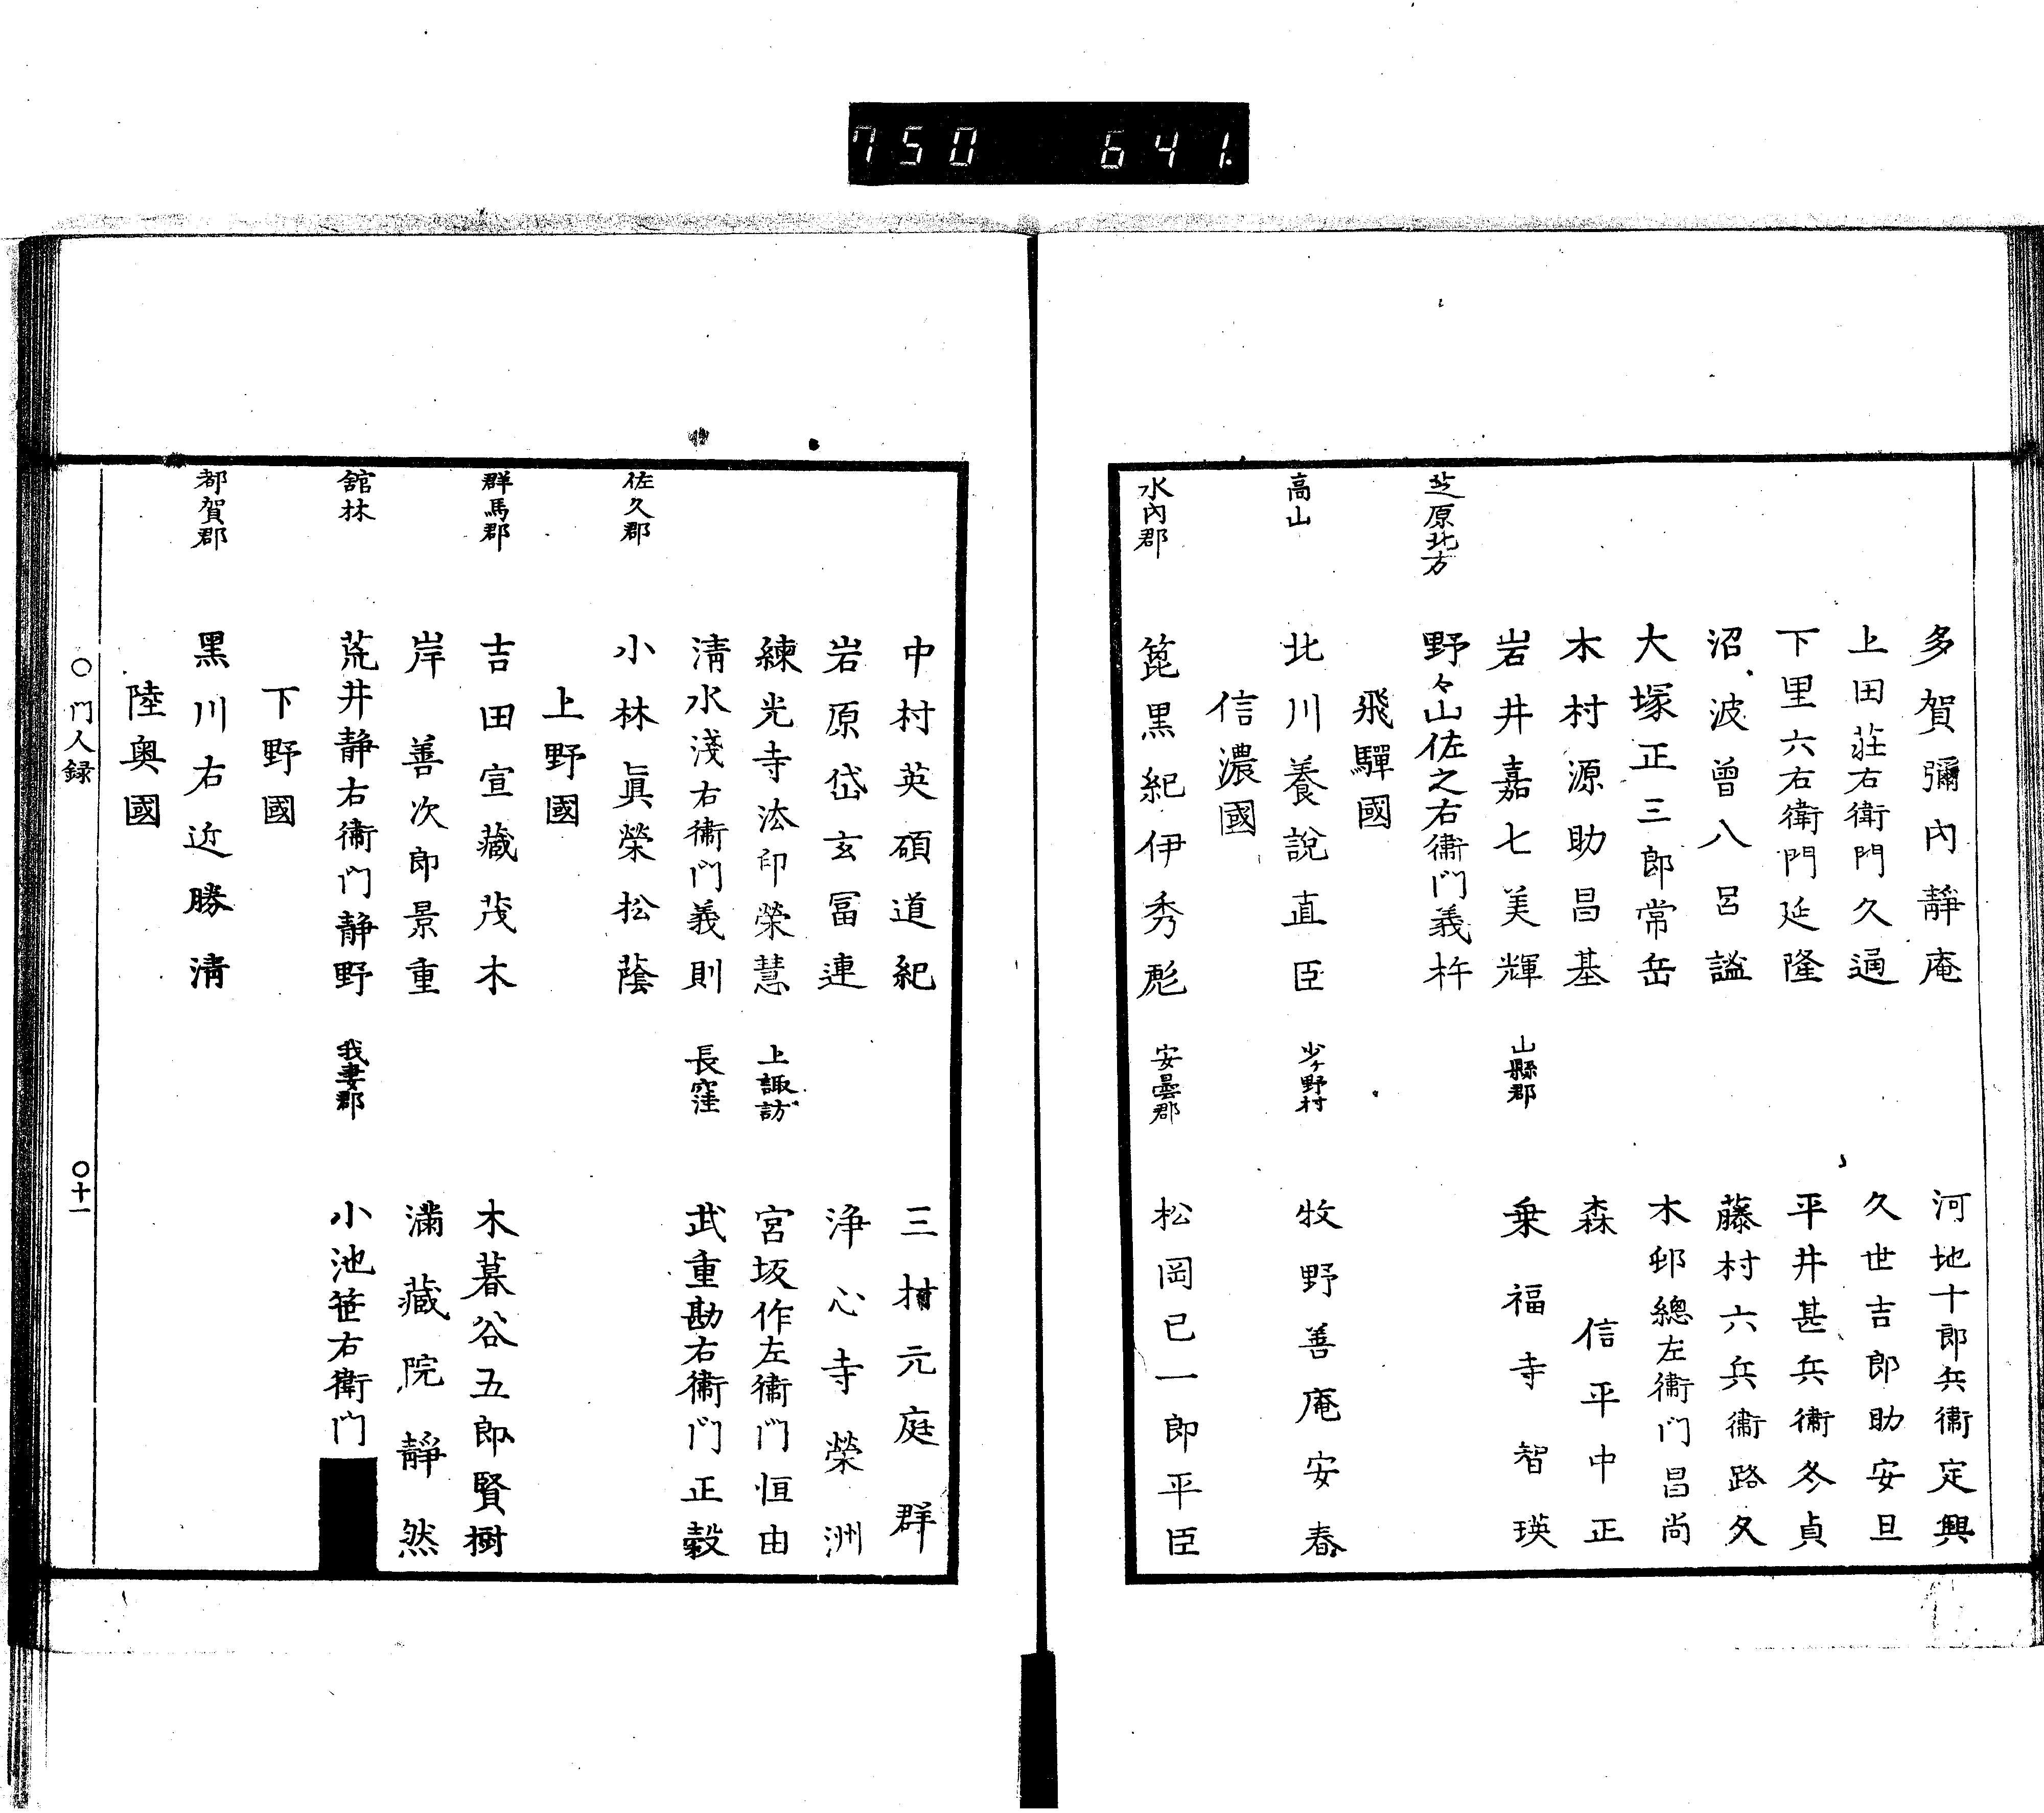 750 641.
多賀彌內靜庵
河地十郎兵衞定興
上田莊右衛門久通
久世吉郎助安旦
下里六右衛門延隆
平井甚兵衞冬貞
沼波曾八呂謐
藤村六兵衞路久
大塚正三郎常岳
木邨總左衞門昌尚
木村源助昌基
森信平中正
岩井嘉七美輝
山縣郡 乗福寺智瑛
芝原北方 野々山佐之右衞門義杵
飛驒國
高山 北川養說直臣
牧野善庵安春
信濃國
水內郡 箆黒紀伊秀彪
安曇郡 松岡已一郎平臣
中村英碩道紀
三村元庭群
岩原岱玄冨連
浄心寺榮洲
練光寺法印榮慧
上諏訪 宮坂作左衞門恒由
淸水淺右衞門義則
長窪 武重勘右衞門正穀
佐久郡 小林眞榮松蔭
上野國
群馬郡 吉田宣藏茂木
木暮谷五郎賢樹
岸善次郎景重
滿藏院靜然
舘林 荒井静右衞門静野
我妻郡 小池笹右衛門
下野國
都賀郡 黒川右近勝淸
陸奥國
○門人録 ○十一